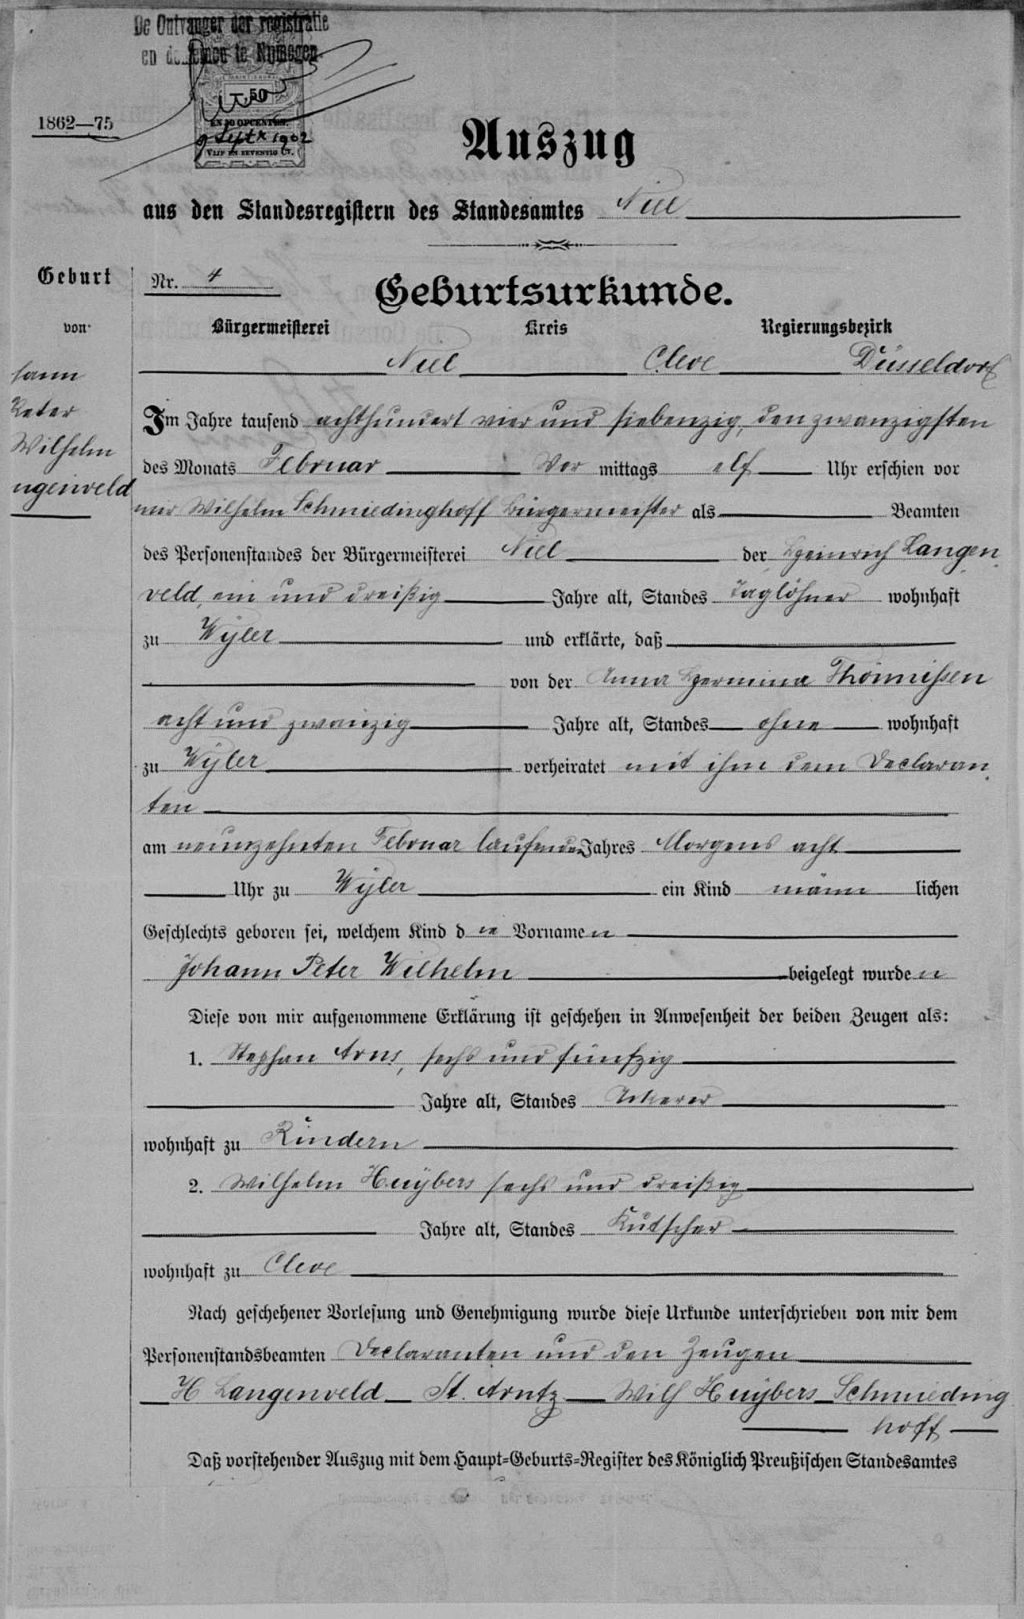 De Ontvanger der registratie
en domeinen te Nijmegen
50
EN 38 OPCENTEN
9 Sept 1902
VIJF EN ZEVENTIG CT.
1862—75
Auszug
aus den Standesregistern des Standesamtes Niel
Geburt
von
hann
Peter
Wilhelm
ngenveld
Nr. 4
Geburtsurkunde.
Bürgermeisterei Kreis Regierungsbezirk
Niel Cleve Düsseldorf
Im Jahre tausend achthundert vier und siebenzig, den zwanzigsten
des Monats Februar Vor mittags elf Uhr erschien vor
mir Wilhelm Schmiedinghoff Bürgermeister als Beamten
des Personenstandes der Bürgermeisterei Niel der Heinrich Langen
veld, ein und dreißig Jahre alt, Standes Taglöhner wohnhaft
zu Wyler und erklärte, daß
von der Anna Hermina Thönnissen
acht und zwanzig Jahre alt, Standes ohne wohnhaft
zu Wyler verheiratet mit ihm dem Declaran
ten
am neunzehnten Februar laufenden Jahres Morgens acht
Uhr zu Wyler ein Kind männ lichen
Geschlechts geboren sei, welchem Kind die Vornamen
Johann Peter Wilhelm beigelegt wurden
Diese von mir aufgenommene Erklärung ist geschehen in Anwesenheit der beiden Zeugen als:
1. Stephan Arns, sechs und fünfzig
Jahre alt, Standes Ackerer
wohnhaft zu Rindern
2. Wilhelm Huybers sechs und dreißig
Jahre alt, Standes Kutscher
wohnhaft zu Cleve
Nach geschehener Vorlesung und Genehmigung wurde diese Urkunde unterschrieben von mir dem
Personenstandsbeamten Declaranten und den Zeugen
H Langenveld St. Arntz Wilh Huybers Schmieding
hoff
Daß vorstehender Auszug mit dem Haupt-Geburts-Register des Königlich Preußischen Standesamtes